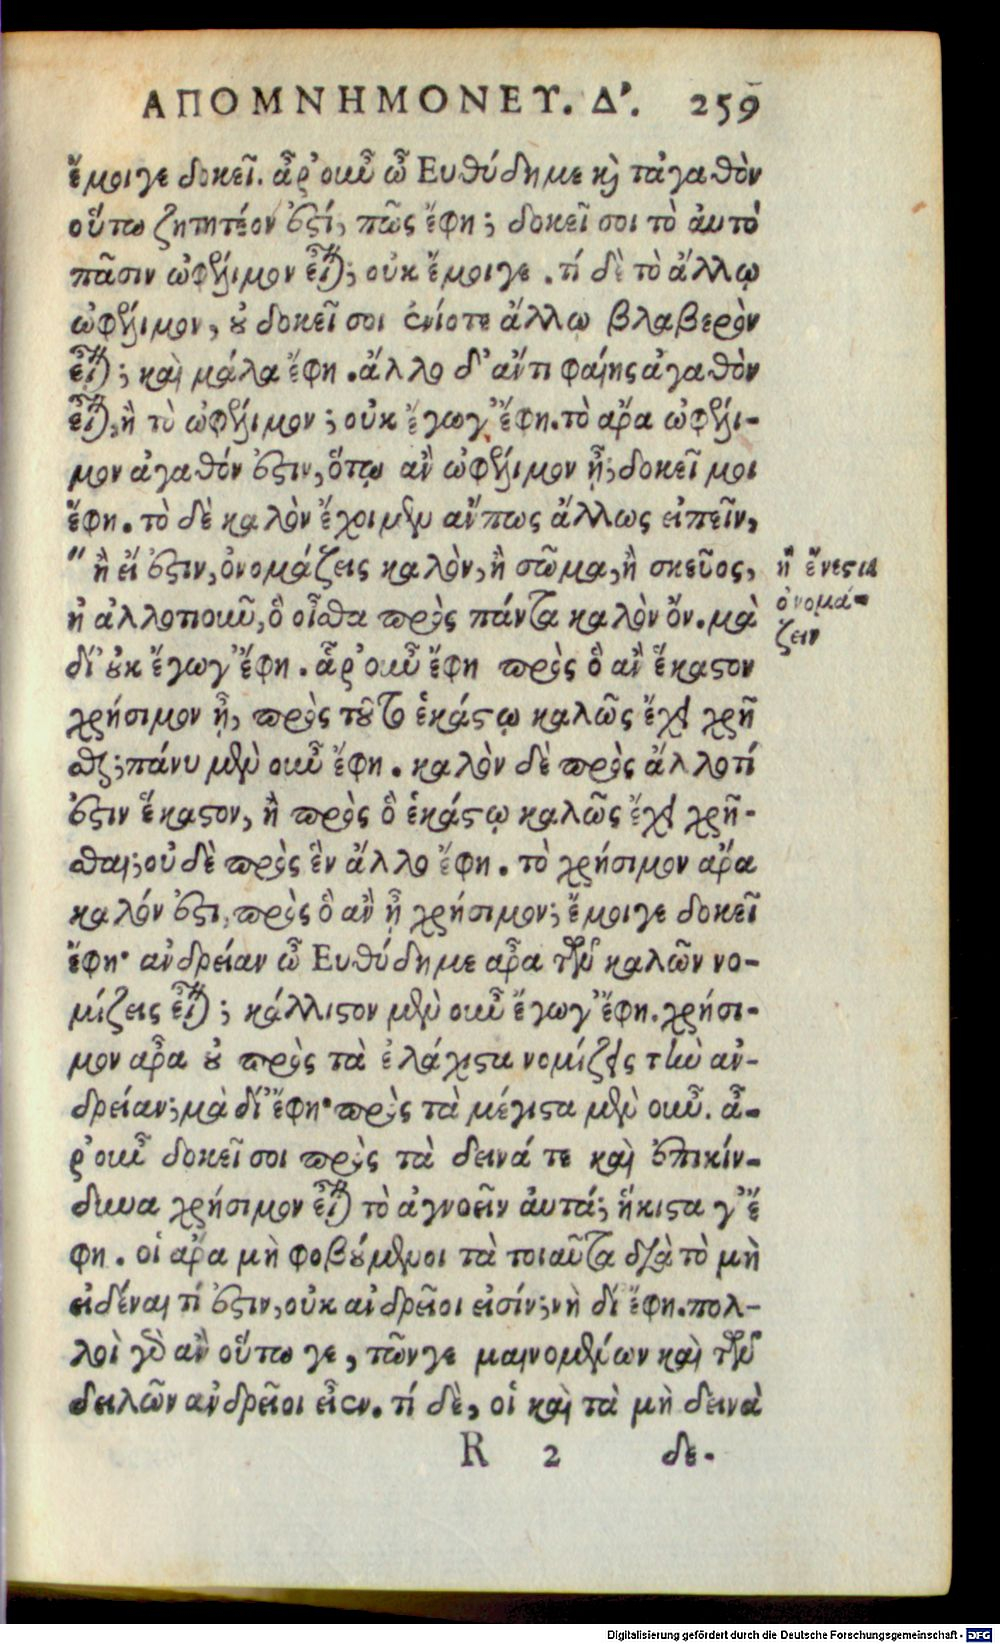 ΑΠΟΜΝΗΜΟΝΕΥ. Δ'. 259
ἔμοιγε δοκεῖ. ἆρ' οὖν ὦ Εὐθύδημε καὶ τἀγαθὸν
οὕτω ζητητέον ἐστί, πῶς ἔφη; δοκεῖ σοι τὸ αὐτὸ
πᾶσιν ὠφέλιμον εἶναι; οὐκ ἔμοιγε. τί δὲ τὸ ἄλλῳ
ὠφέλιμον, οὐ δοκεῖ σοι ἐνίοτε ἄλλῳ βλαβερὸν
εἶναι; καὶ μάλα ἔφη. ἄλλο δ' ἄν τι φαίης ἀγαθὸν
εἶναι, ἢ τὸ ὠφέλιμον; οὐκ ἔγωγ' ἔφη. τὸ ἄρα ὠφέλι-
μον ἀγαθόν ἐστιν, ὅτῳ ἂν ὠφέλιμον ᾖ; δοκεῖ μοι
ἔφη. τὸ δὲ καλὸν ἔχοιμεν ἄν πως ἄλλως εἰπεῖν,
" ἢ εἴ ἐστιν, ὀνομάζεις καλὸν, ἢ σῶμα, ἢ σκεῦος,
ἢ ἀλλοτιοῦν, ὃ οἶσθα πρὸς πάντα καλὸν ὄν. μὰ
δί' οὐκ ἔγωγ' ἔφη. ἆρ' οὖν ἔφη πρὸς ὃ ἂν ἕκαστον
χρήσιμον ᾖ, πρὸς τοῦτο ἑκάστῳ καλῶς ἔχει χρῆ
σθαι; πάνυ μὲν οὖν ἔφη. καλὸν δὲ πρὸς ἄλλο τί
ἐστιν ἕκαστον, ἢ πρὸς ὃ ἑκάστῳ καλῶς ἔχει χρῆ-
σθαι; οὐδὲ πρὸς ἓν ἄλλο ἔφη. τὸ χρήσιμον ἄρα
καλόν ἐστι, πρὸς ὃ ἂν ᾖ χρήσιμον; ἔμοιγε δοκεῖ
ἔφη· ἀνδρείαν ὦ Εὐθύδημε ἆρα τῶν καλῶν νο-
μίζεις εἶναι; κάλλιστον μὲν οὖν ἔγωγ' ἔφη. χρήσι-
μον ἆρα οὐ πρὸς τὰ ἐλάχιστα νομίζεις τὴν ἀν-
δρείαν; μὰ δί' ἔφη· πρὸς τὰ μέγιστα μὲν οὖν. ἆ-
ρ' οὖν δοκεῖ σοι πρὸς τὰ δεινά τε καὶ ἐπικίν-
δυνα χρήσιμον εἶναι τὸ ἀγνοεῖν αὐτά; ἥκιστα γ' ἔ
φη. οἱ ἄρα μὴ φοβούμενοι τὰ τοιαῦτα διὰ τὸ μὴ
εἰδέναι τί ἐστιν, οὐκ ἀνδρεῖοι εἰσίν; νὴ δί ἔφη. πολ-
λοὶ γὰρ ἂν οὕτω γε, τῶν γε μαινομένων καὶ τῶν
δειλῶν ἀνδρεῖοι εἶεν. τί δὲ, οἱ καὶ τὰ μὴ δεινὰ
R 2 δε-
ἢ ἔνεστιν
ὀνομά-
ζειν
Digitalisierung gefördert durch die Deutsche Forschungsgemeinschaft - DFG